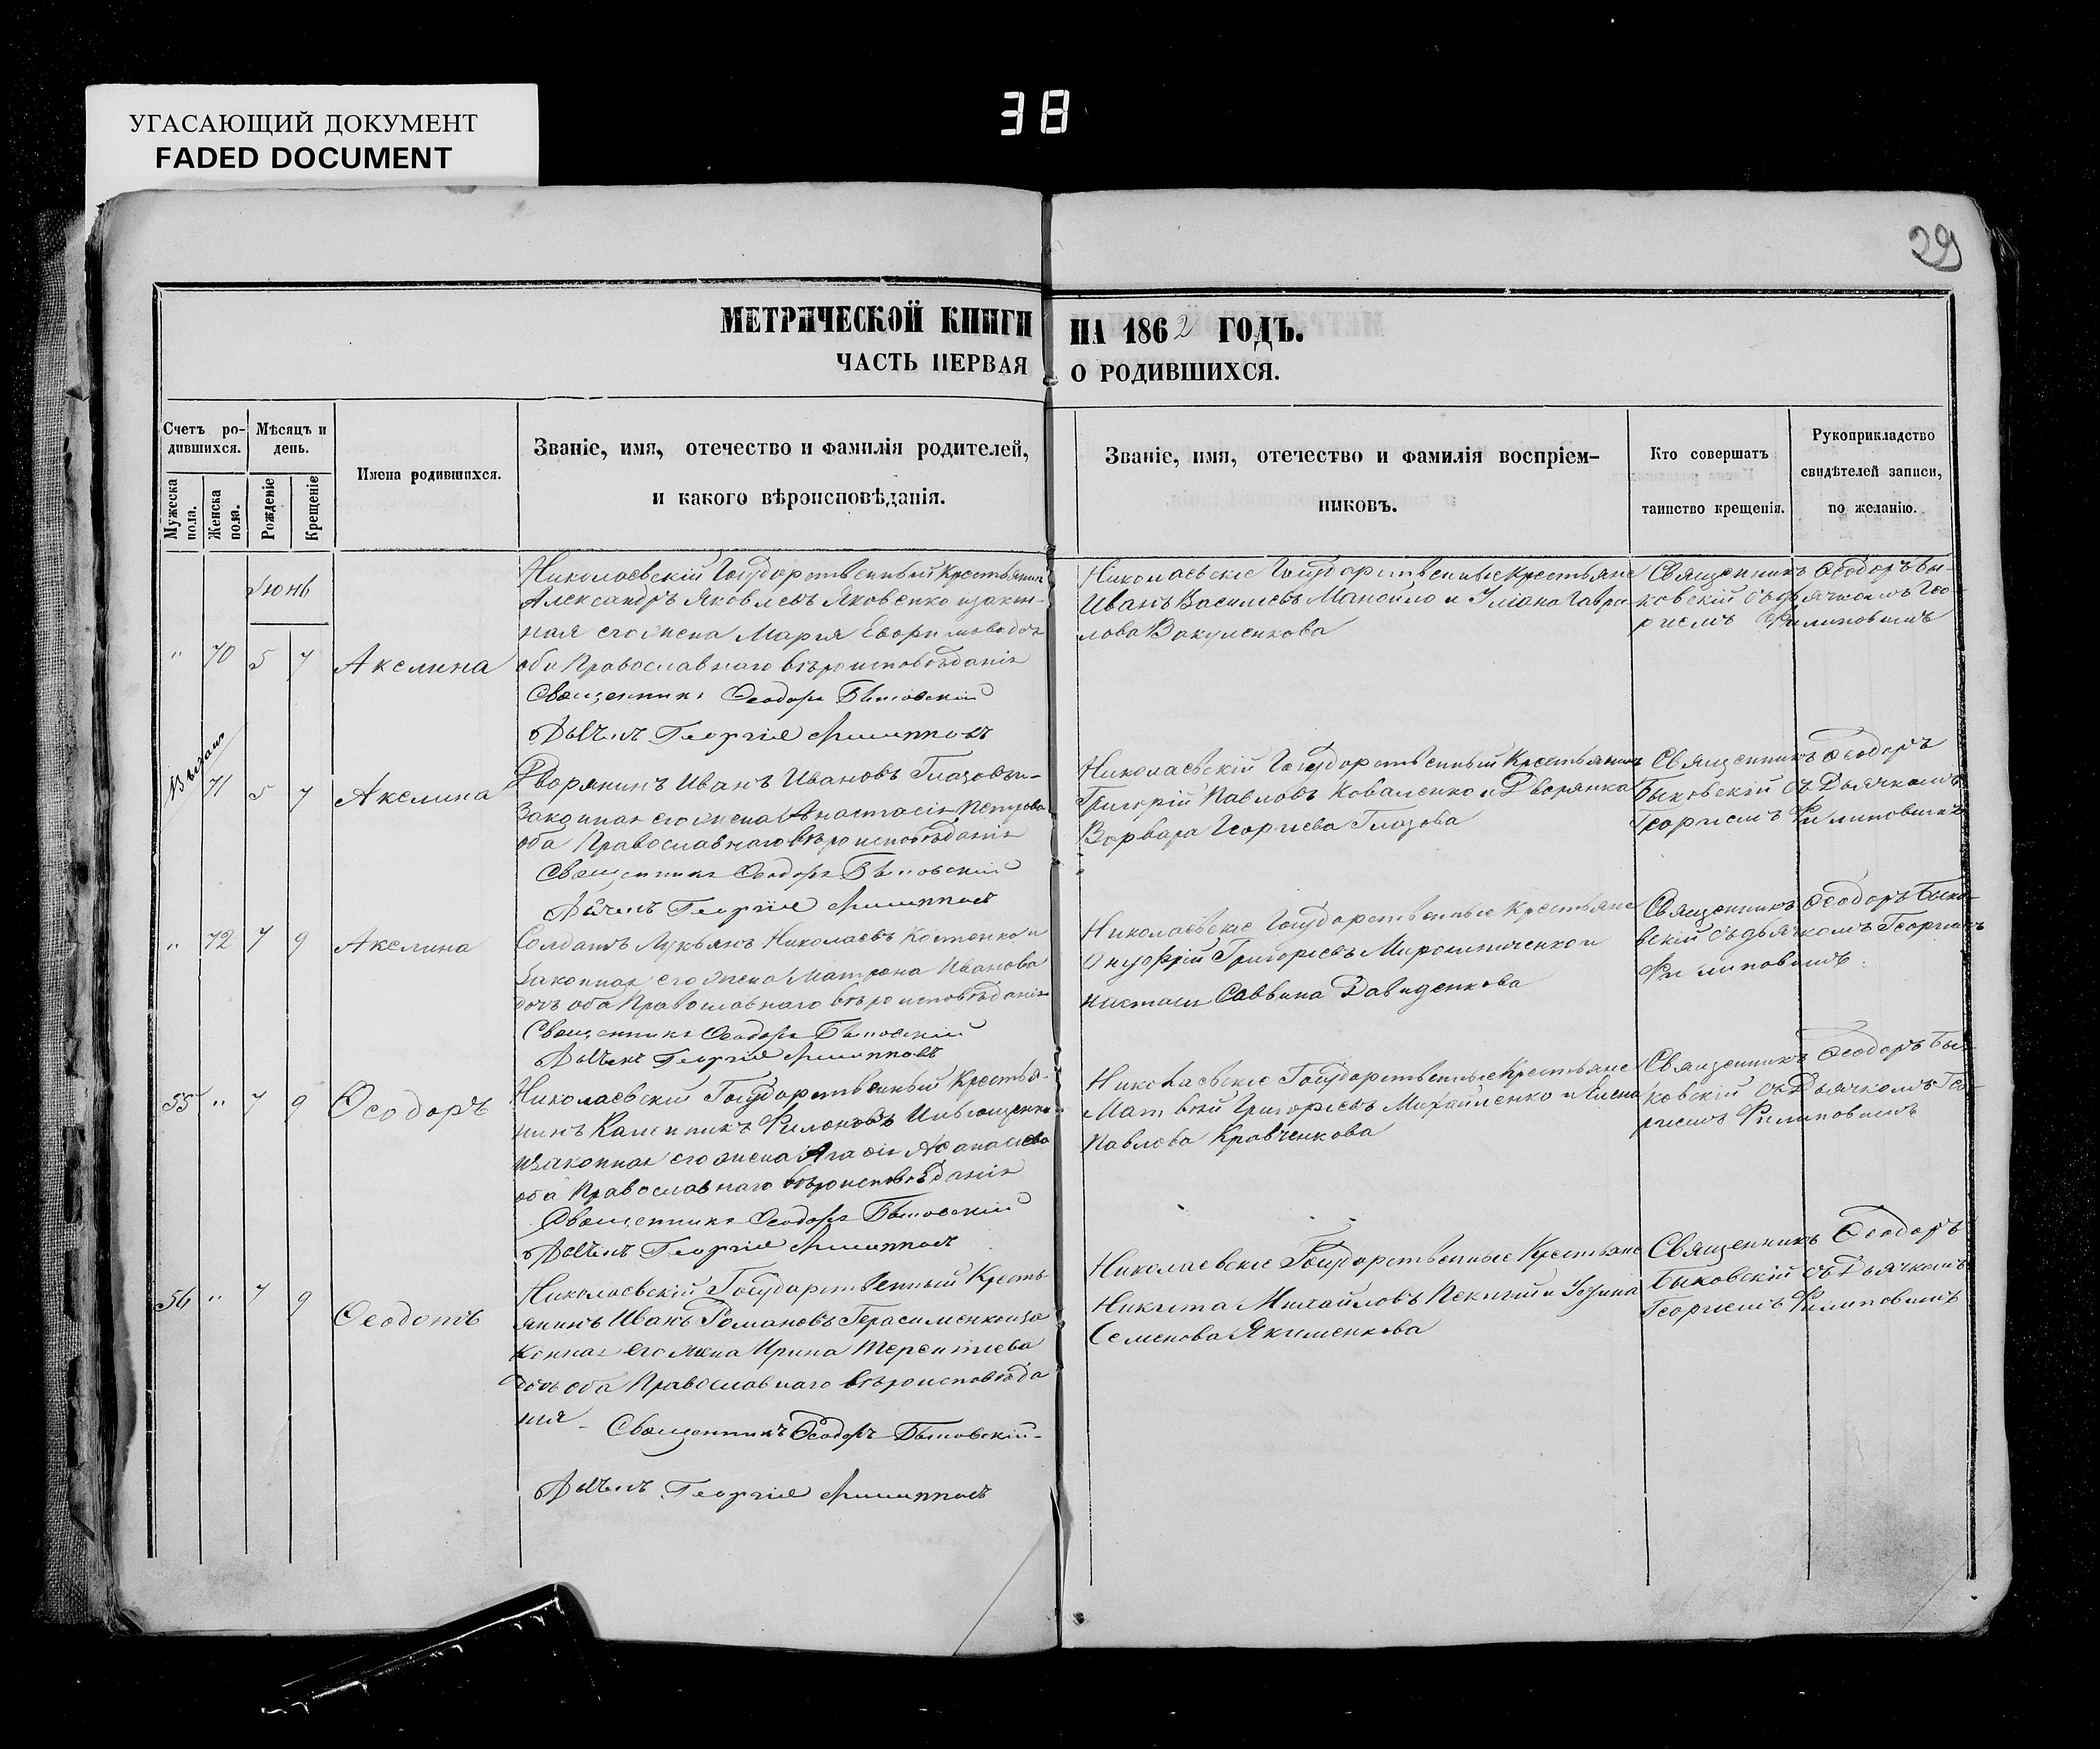 УГАСАЮЩИЙ ДОКУМЕНТ
FADED DOCUMENT
38
29
МЕТРИЧЕСКОЙ КНИГИ НА 1862 ГОДЪ.
ЧАСТЬ ПЕРВАЯ О РОДИВШИХСЯ.
Счетъ ро-
дившихся.
Мужеска
пола.
Женска
пола.
Мѣсяцъ и
день.
Рожденіе
Крещеніе
Имена родившихся.
Званіе, имя, отечество и фамилія родителей,
и какого вѣроисповѣданія.
Званіе, имя, отечество и фамилія воспріем-
никовъ.
Кто совершатъ
таинство крещенія.
Рукоприкладство
свидѣтелей записи,
по желанію.
Іюнь
" 70 5 7 Акелина
Николаевскій Государственный Крестьянинъ
Александръ Яковлевъ Яковенко изакон-
ная его жена Марія
оба Православнаго вѣроисповѣданія
Священникъ Ѳеодоръ Быковскій
Дьячекъ Георгій Филипповъ
Николаевскіе Государственные Крестьяне
Иванъ Васильевъ Манойло и Уліана Гаври
лова Вакуленкова
Священникъ Ѳеодоръ Бы-
ковскій съ дьячкомъ Гео
ргіемъ Филиповымъ
71 5 7 Акелина
Дворянинъ Иванъ Ивановъ Глазовъ и
Законная его жена Анастасія Петрова
оба Православнаго вѣроисповѣданія
Священникъ Ѳеодоръ Быковскій
Дьячекъ Георгій Филипповъ
Николаевскій Государственный Крестьянинъ
Григорій Павловъ Коваленко и Дворянка
Варвара Георгіева Глазова
Священникъ Ѳеодоръ
Быковскій съ Дьячкомъ
Георгіемъ Филиповымъ
" 72 7 9 Акелина
Солдатъ Лукьянъ Николаевъ Костенко и
Законная его жена Матрона Иванова
дочь оба Православнаго вѣроисповѣданія
Священникъ Ѳеодоръ Быковскій
Дьячекъ Георгій Филипповъ
Николаевскіе Государственные Крестьяне
Онуфрій Григорьевъ Мирошниченко и
Савина Давиденкова
Священникъ Ѳеодоръ Быко-
вскій съ дьячкомъ Георгіемъ
Филиповымъ
55 " 7 9 Ѳеодоръ
Николаевскій Государственный Крестья-
нинъ Каленикъ Филоновъ
изаконная его жена Агафія Аѳанасіева
оба Православнаго вѣроисповѣданія
Священникъ Ѳеодоръ Быковскій
Дьячекъ Георгій Филипповъ
Николаевскіе Государственные Крестьяне
Матвѣй Григорьевъ Михайленко и Елена
Павлова Кравченкова
Священникъ Ѳеодоръ Бы-
ковскій съ Дьячкомъ Гео
ргіемъ Филиповымъ
56 " 7 9 Ѳеодотъ
Николаевскій Государственный Кресть
янинъ Иванъ Романовъ Герасименко иза
конная его жена Ирина Терентіева
дочь оба Православнаго вѣроисповѣда
нія
Священникъ Ѳеодоръ Быковскій
Дьячекъ Георгій Филипповъ
Николаевскіе Государственные Крестьяне
Никита Михайловъ
Семенова Якименкова
Священникъ Ѳеодоръ
Быковскій съ Дьячкомъ
Георгіемъ Филиповымъ